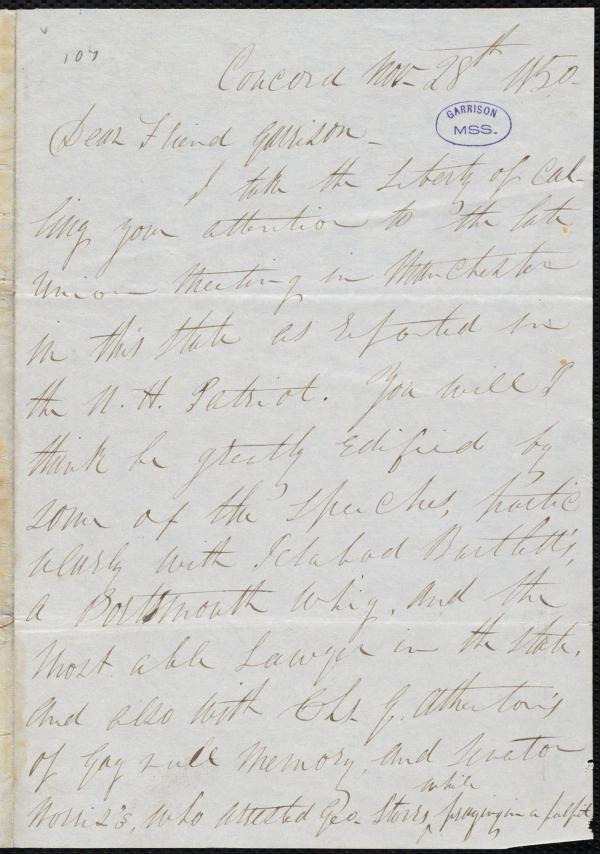 107
Concord Nov- 28th 1850-
GARRISON
MSS.
Dear Friend Garrison-
I take the Liberty of cal-
ling your attention to the late
Union Meeting in Manchester
in this State as Reported in
the N. H. Patriot. You will I
think be greatly Edified by
some of the speeches, partic
ularly with Ichabod Bartlett's,
a Portsmouth Whig, and the
Most able Lawyer in the State,
and also with Chs. G. Atherton's
of Gag rule Memory, and Senator
while
Norris's, who arrested Geo. Storrs praying in a pulpit